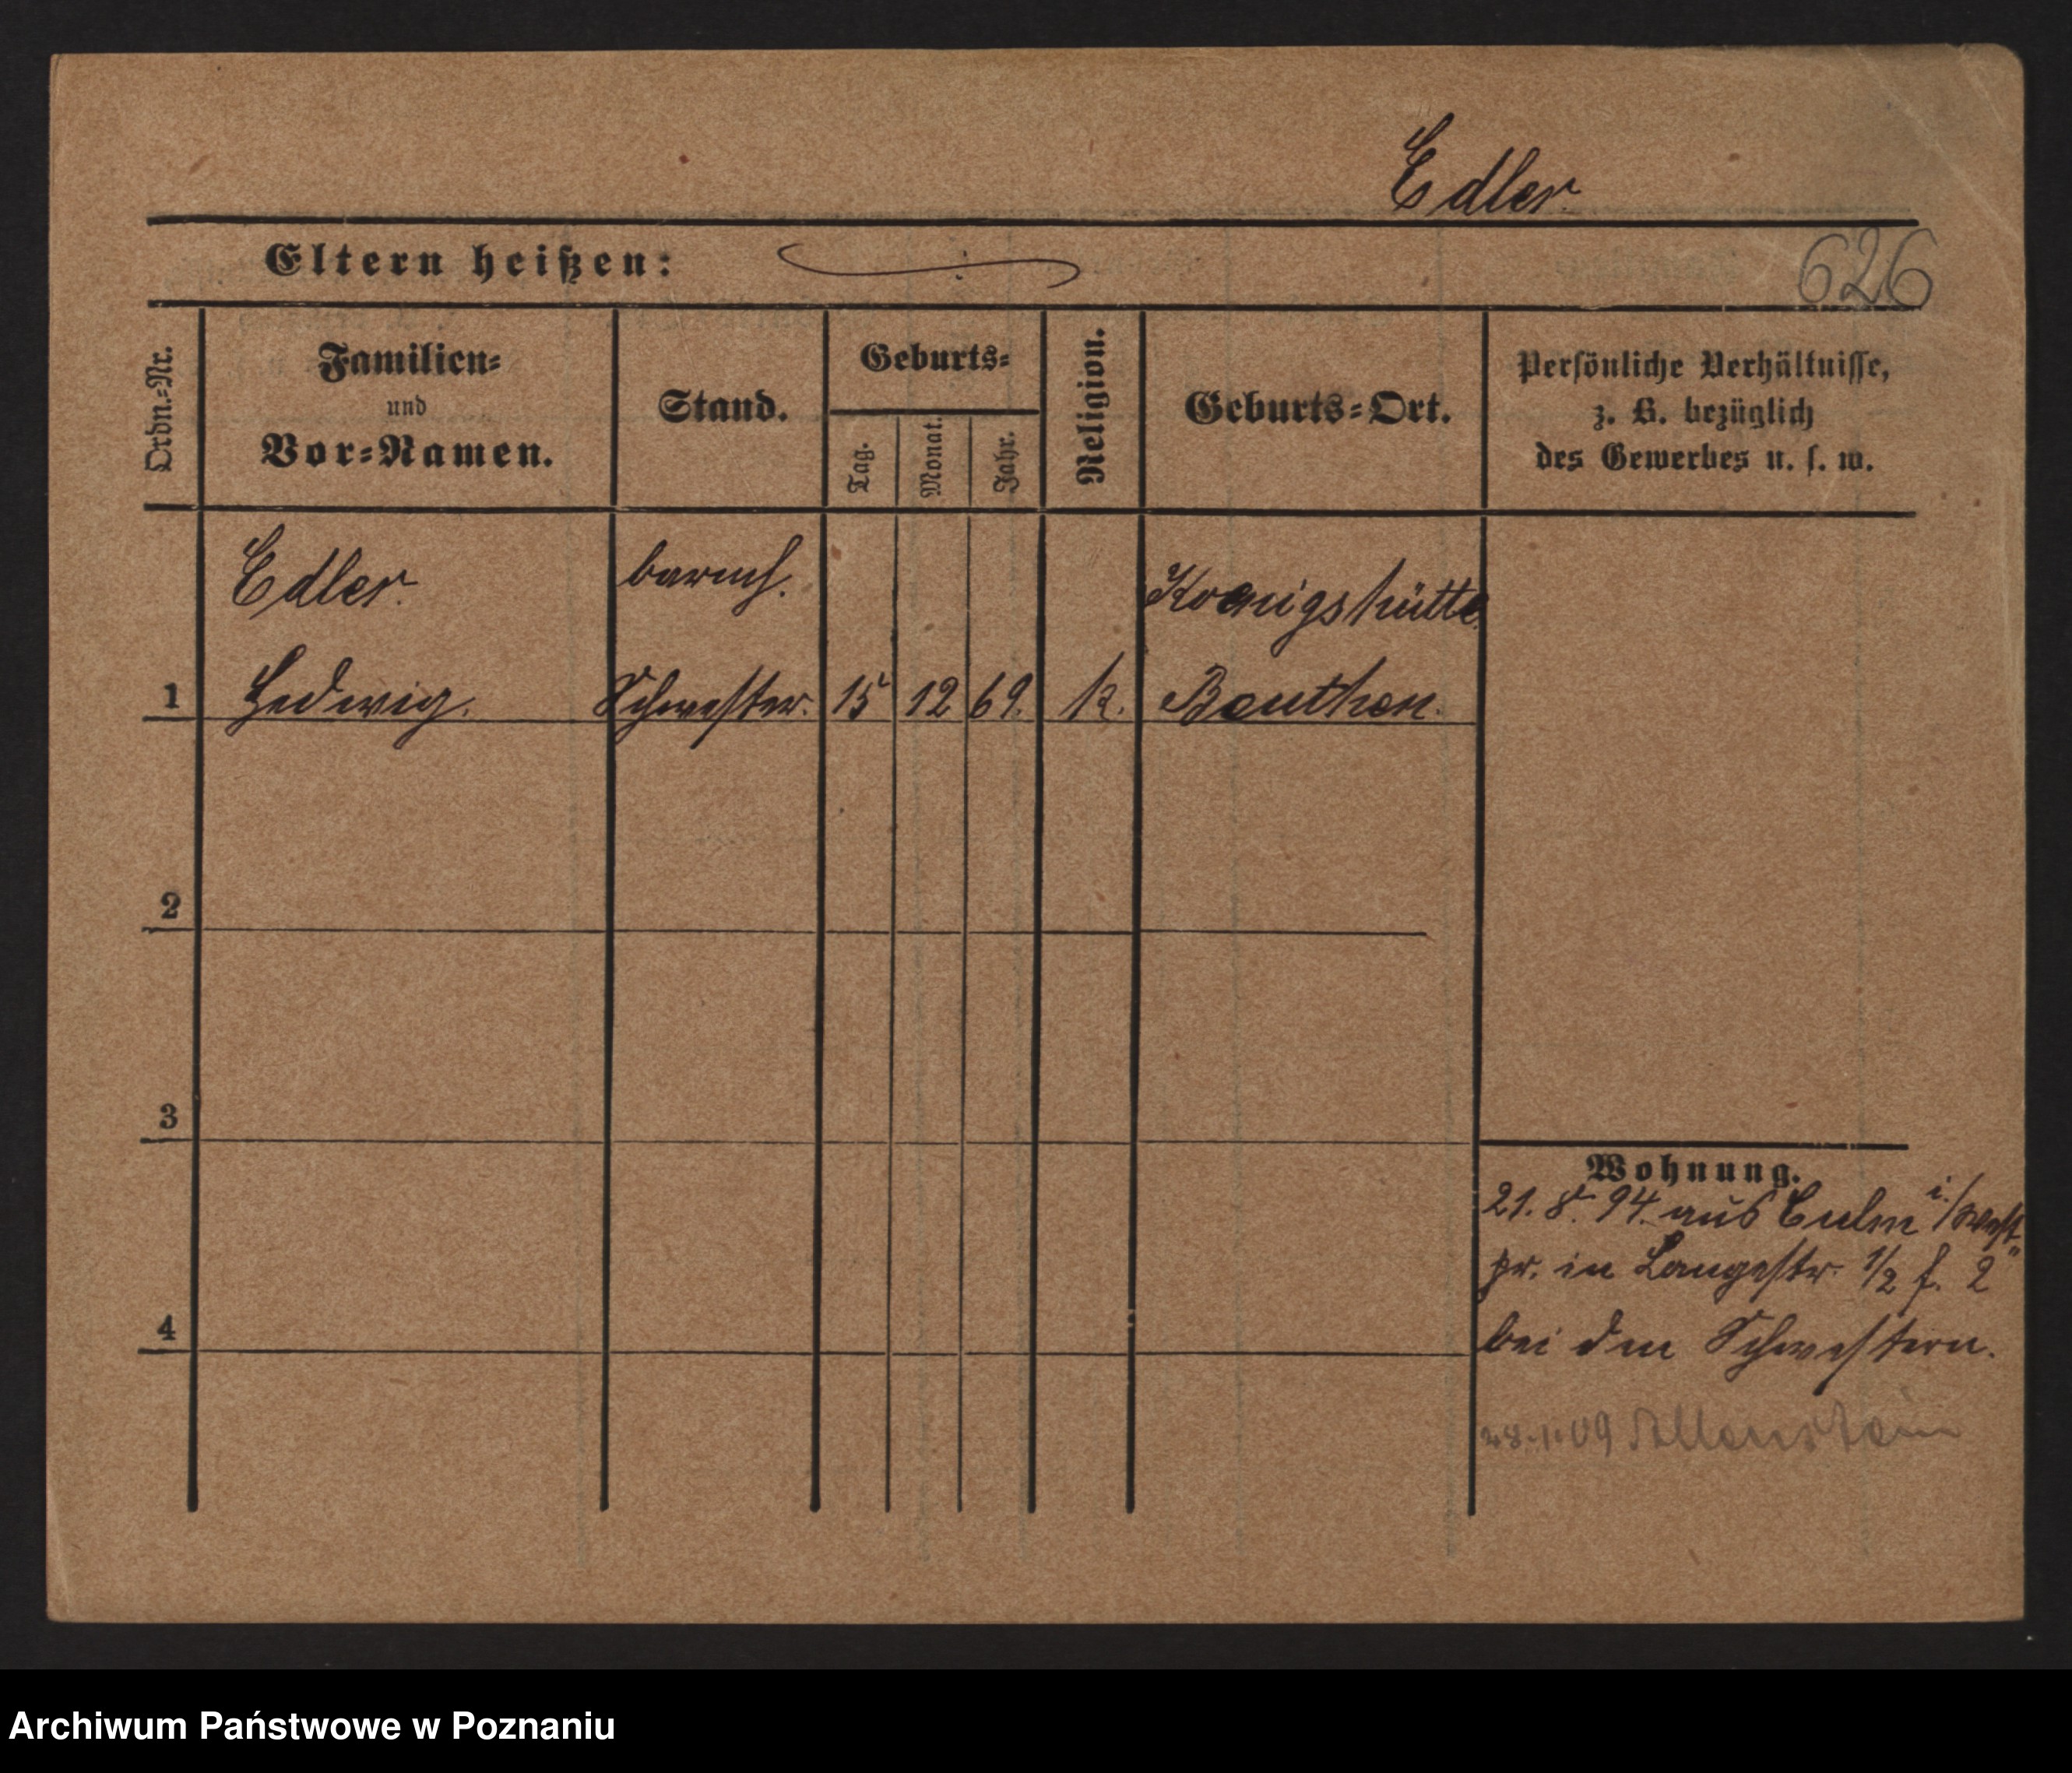 Edler
Eltern heißen:
626
Ordn.-Nr.
Familien-
und
Vor-Namen.
Stand.
Geburts-
Tag.
Monat.
Jahr.
Religion.
Geburts-Ort.
Persönliche Verhältnisse,
z. B. bezüglich
des Gewerbes u. s. w.
Edler.
barmh.
Koenigshütte
1
Hedwig.
Schwester.
15
12
69.
k.
Beuthen.
2
3
Wohnung.
21. 8. 94. aus Culm i./West
pr. in Langestr. 1/2 f. 2
4
bei den Schwestern.
28.1.09 Allenstein
Archiwum Państwowe w Poznaniu